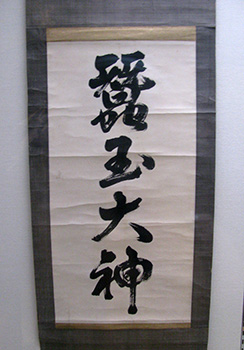 蠶玉大神